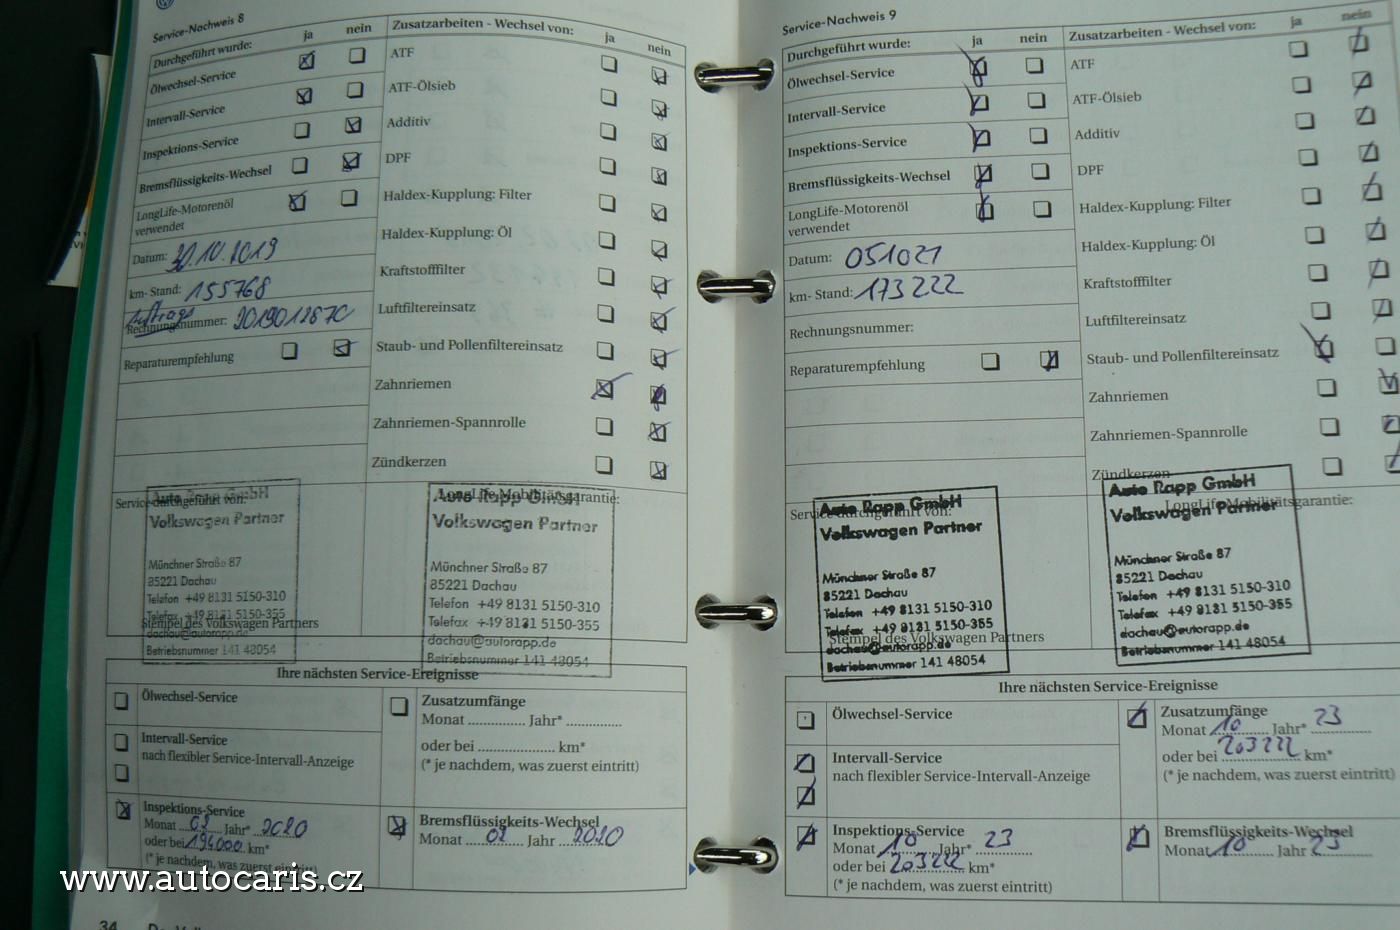 Service-Nachweis 8
Durchgeführt wurde: ja nein
Ölwechsel-Service
Intervall-Service
Inspektions-Service
Bremsflüssigkeits-Wechsel
LongLife-Motorenöl
verwendet
Datum: 30.10.2019
km- Stand: 155768
Auftrags
Rechnungsnummer:
Reparaturempfehlung
Zusatzarbeiten - Wechsel von: ja nein
ATF
ATF-Ölsieb
Additiv
DPF
Haldex-Kupplung: Filter
Haldex-Kupplung: Öl
Kraftstofffilter
Luftfiltereinsatz
Staub- und Pollenfiltereinsatz
Zahnriemen
Zahnriemen-Spannrolle
Zündkerzen
Service durchgeführt von:
Auto Rapp GmbH
Volkswagen Partner
Münchner Straße 87
85221 Dachau
Telefon +49 8131 5150-310
Telefax +49 8131 5150-355
dachau@autorapp.de
Betriebsnummer 141 48054
Stempel des Volkswagen Partners
LongLife Mobilitätsgarantie:
Auto Rapp GmbH
Volkswagen Partner
Münchner Straße 87
85221 Dachau
Telefon +49 8131 5150-310
Telefax +49 8131 5150-355
dachau@autorapp.de
Betriebsnummer 141 48054
Ihre nächsten Service-Ereignisse
Ölwechsel-Service
Intervall-Service
nach flexibler Service-Intervall-Anzeige
Inspektions-Service
Monat 02 Jahr* 2020
oder bei 194000 km*
(* je nachdem, was zuerst eintritt)
Zusatzumfänge
Monat .............. Jahr* ..............
oder bei .................... km*
(* je nachdem, was zuerst eintritt)
Bremsflüssigkeits-Wechsel
Monat 02 Jahr 2020
34
Service-Nachweis 9
Durchgeführt wurde: ja nein
Ölwechsel-Service
Intervall-Service
Inspektions-Service
Bremsflüssigkeits-Wechsel
LongLife-Motorenöl
verwendet
Datum: 051021
km- Stand: 173222
Rechnungsnummer:
Reparaturempfehlung
Zusatzarbeiten - Wechsel von: ja nein
ATF
ATF-Ölsieb
Additiv
DPF
Haldex-Kupplung: Filter
Haldex-Kupplung: Öl
Kraftstofffilter
Luftfiltereinsatz
Staub- und Pollenfiltereinsatz
Zahnriemen
Zahnriemen-Spannrolle
Zündkerzen
Service durchgeführt von:
Auto Rapp GmbH
Volkswagen Partner
Münchner Straße 87
85221 Dachau
Telefon +49 8131 5150-310
Telefax +49 8131 5150-355
dachau@autorapp.de
Betriebsnummer 141 48054
Stempel des Volkswagen Partners
LongLife Mobilitätsgarantie:
Auto Rapp GmbH
Volkswagen Partner
Münchner Straße 87
85221 Dachau
Telefon +49 8131 5150-310
Telefax +49 8131 5150-355
dachau@autorapp.de
Betriebsnummer 141 48054
Ihre nächsten Service-Ereignisse
Ölwechsel-Service
Intervall-Service
nach flexibler Service-Intervall-Anzeige
Inspektions-Service
Monat 10 Jahr* 23
oder bei 203222 km*
(* je nachdem, was zuerst eintritt)
Zusatzumfänge
Monat 10 Jahr* 23
oder bei 203222 km*
(* je nachdem, was zuerst eintritt)
Bremsflüssigkeits-Wechsel
Monat 10 Jahr 23
www.autocaris.cz